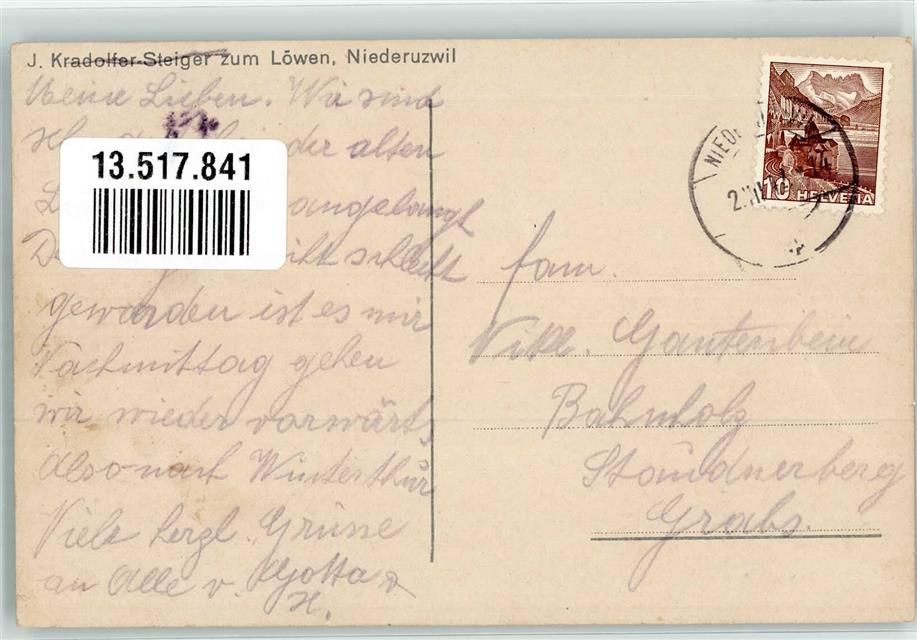 J. Kradolfer-Steiger zum Löwen, Niederuzwil
Meine Lieben. Wir sind
der alten
13.517.841
angelangt
schlecht
geworden ist es mir
Nachmittag gehen
wir wieder vorwärts,
Also nach Winterthur
Viele herzl. Grüsse
an Alle v. Gotta
H.
NIEDE
10 HELVETIA
2.
Fam.
Gantenbein
Bahnholz
Stäudnerberg
Grabs.